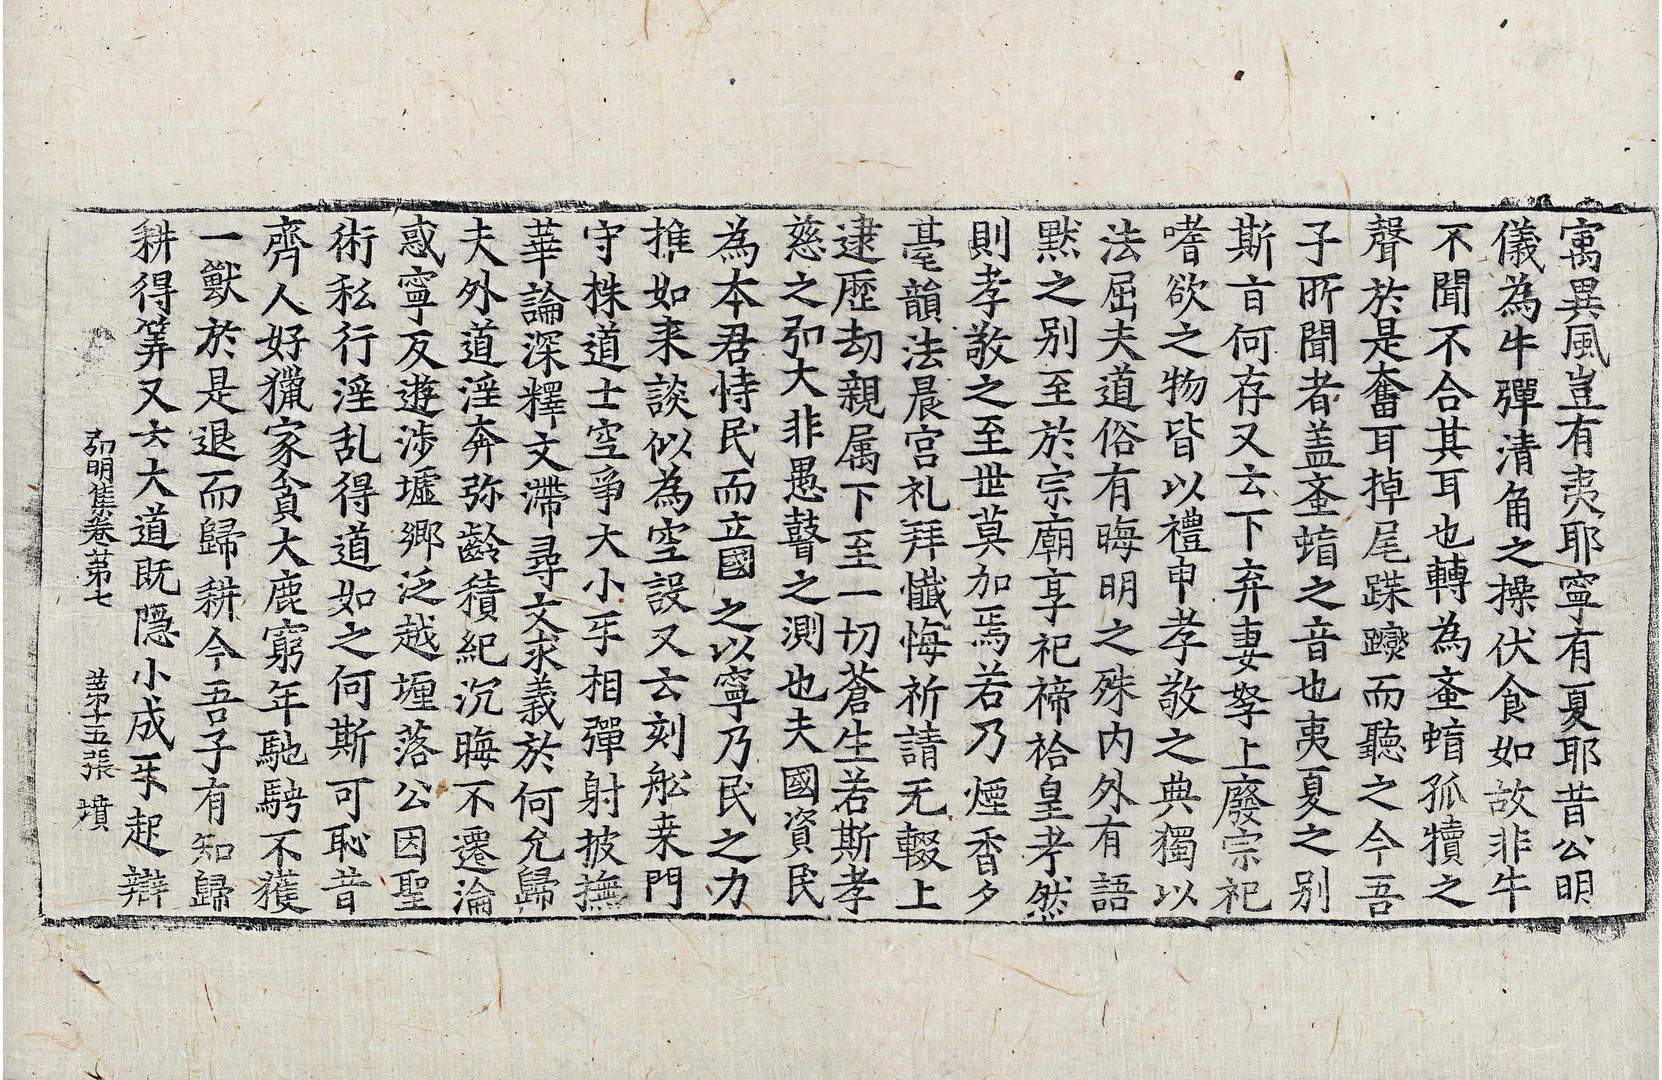 寓異風豈有夷耶寧有夏耶昔公明
儀為牛彈清角之操伏食如故非牛
不聞不合其耳也轉為蚉蝱孤犢之
聲於是奮耳掉尾蹀躞而聽之今吾
子所聞者盖蚉蝱之音也夷夏之別
斯旨何存又云下弃妻孥上廢宗祀
嗜欲之物皆以禮申孝敬之典獨以
法屈夫道俗有晦明之殊内外有語
黙之别至於宗廟享祀禘祫皇考然
則孝敬之至世莫加焉若乃煙香夕
臺韻法晨宫礼拜懺悔祈請无輟上
逮歷劫親属下至一切蒼生若斯孝
慈之弘大非愚瞽之測也夫國資民
為本君恃民而立國之以寧乃民之力
推如来談似為空設又云刻舩桒門
守株道士空爭大小㸦相彈射披撫
華論深釋文滯尋文求義於何允歸
夫外道淫奔弥齡積紀沉晦不遷淪
惑寧反遊涉墟鄉泛越㕓落公因聖
術私行淫乱得道如之何斯可恥昔
齊人好獵家貧犬鹿窮年馳騁不獲
一獸於是退而歸耕今吾子有知歸
耕得筭又云大道既隱小成㸦起辯
弘明集卷第七　第十五張　墳